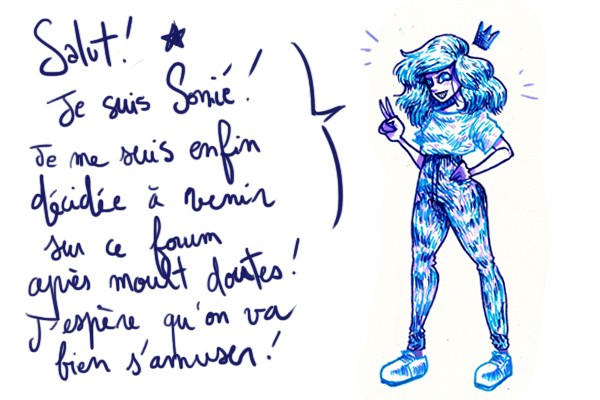 Salut!
Je suis Sonié!
Je me suis enfin
décidée à venir
sur ce forum
après moult doutes!
J'espère qu'on va
bien s'amuser!